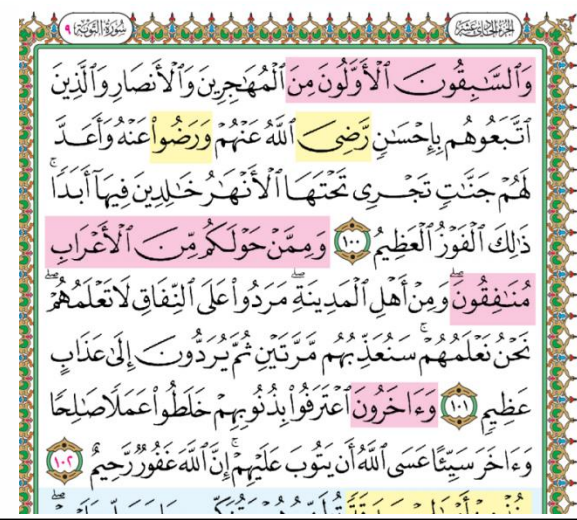 سُورَةُ التَّوْبَةِ ٩ الجُزْءُ الحَادِي عَشَرَ
وَٱلسَّٰبِقُونَ ٱلْأَوَّلُونَ مِنَ ٱلْمُهَٰجِرِينَ وَٱلْأَنصَارِ وَٱلَّذِينَ
ٱتَّبَعُوهُم بِإِحْسَٰنٍ رَّضِىَ ٱللَّهُ عَنْهُمْ وَرَضُوا۟ عَنْهُ وَأَعَدَّ
لَهُمْ جَنَّٰتٍ تَجْرِى تَحْتَهَا ٱلْأَنْهَٰرُ خَٰلِدِينَ فِيهَآ أَبَدًۭا ۚ
ذَٰلِكَ ٱلْفَوْزُ ٱلْعَظِيمُ ١٠٠ وَمِمَّنْ حَوْلَكُم مِّنَ ٱلْأَعْرَابِ
مُنَٰفِقُونَ ۖ وَمِنْ أَهْلِ ٱلْمَدِينَةِ ۖ مَرَدُوا۟ عَلَى ٱلنِّفَاقِ لَا تَعْلَمُهُمْ ۖ
نَحْنُ نَعْلَمُهُمْ ۚ سَنُعَذِّبُهُم مَّرَّتَيْنِ ثُمَّ يُرَدُّونَ إِلَىٰ عَذَابٍ
عَظِيمٍۢ ١٠١ وَءَاخَرُونَ ٱعْتَرَفُوا۟ بِذُنُوبِهِمْ خَلَطُوا۟ عَمَلًۭا صَٰلِحًۭا
وَءَاخَرَ سَيِّئًا عَسَى ٱللَّهُ أَن يَتُوبَ عَلَيْهِمْ ۚ إِنَّ ٱللَّهَ غَفُورٌۭ رَّحِيمٌ ١٠٢